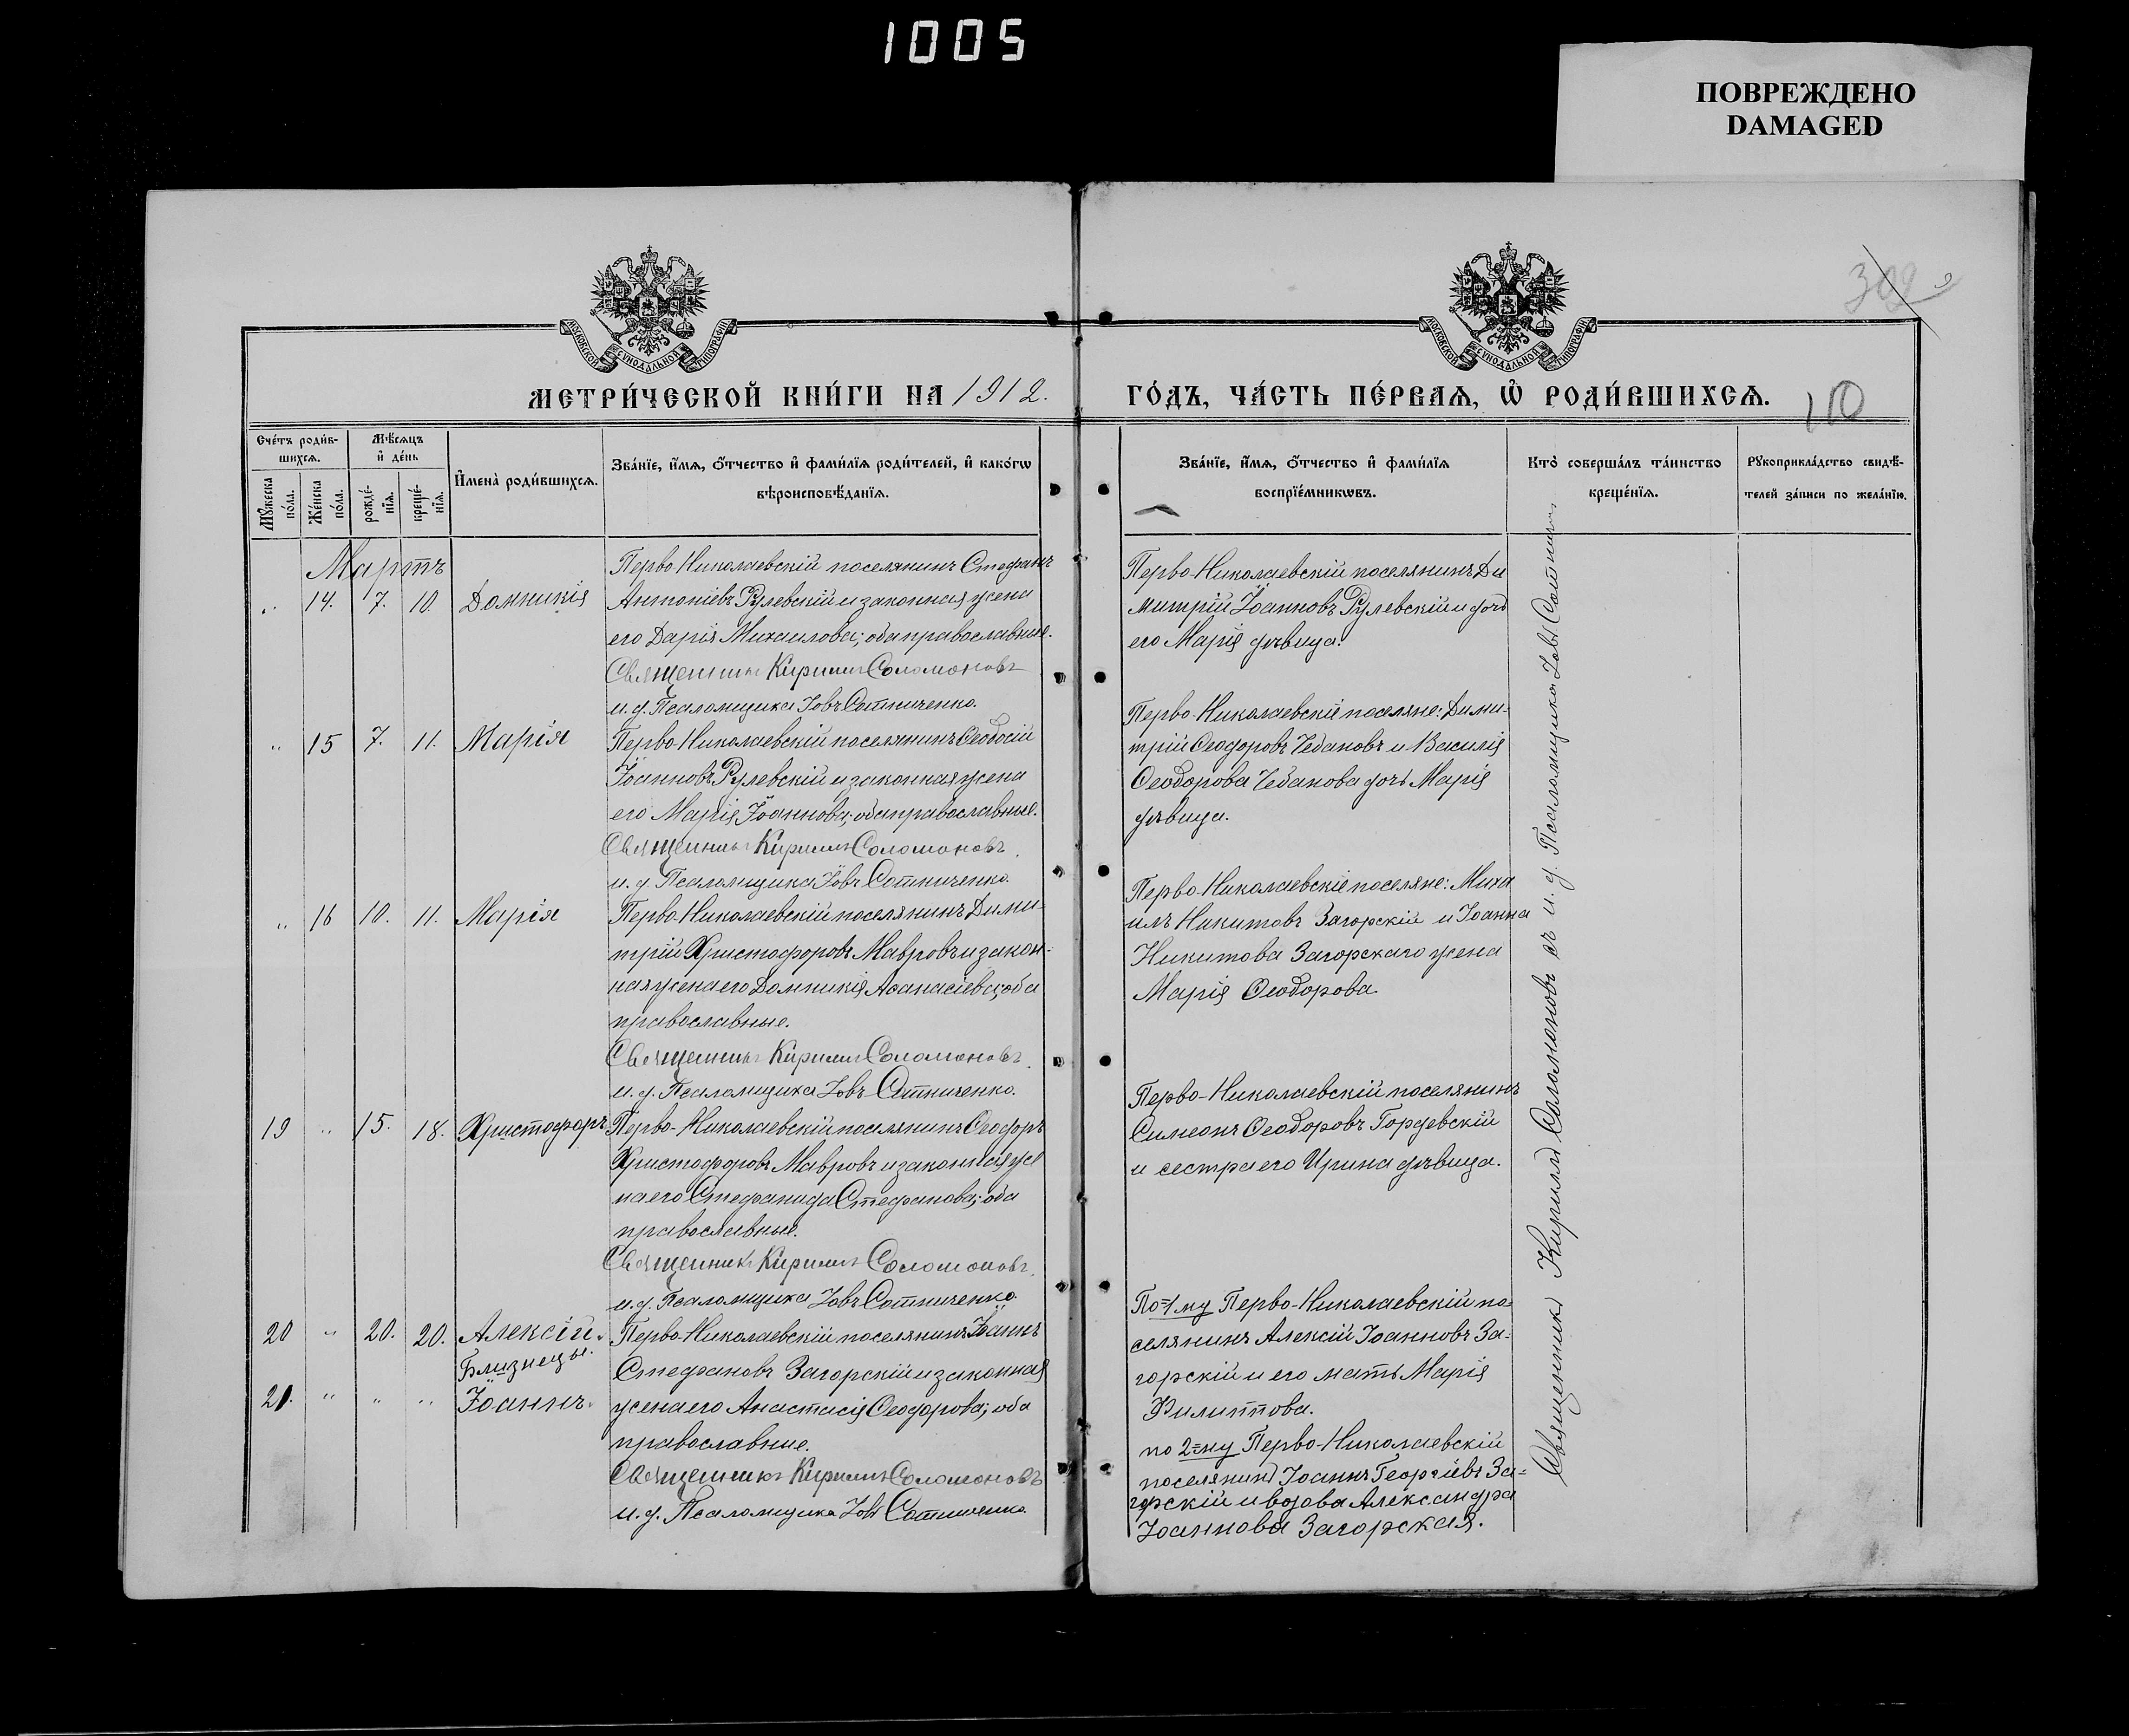 1005
ПОВРЕЖДЕНО
DAMAGED
МОСКОВСКОЙ СѴНОДАЛЬНОЙ ТИПОГРАФІИ
МОСКОВСКОЙ СѴНОДАЛЬНОЙ ТИПОГРАФІИ
МЕТРИ́ЧЕСКОЙ КНИ́ГИ НА 1912.
ГО́ДЪ, ЧА́СТЬ ПЕ́РВАѦ, Ѽ РОДИ́ВШИХСѦ.
110
Сче́тъ роди́в-
шихсѧ.
Мѣ́сѧцъ
и҆ де́нь
Мꙋ́жеска
по́ла.
Же́нска
по́ла.
рожде́-
нїѧ.
креще́-
нїѧ.
И҆мена̀ роди́вшихсѧ.
Зва́нїе, и҆́мѧ, ѻ҆́тчество и҆ фами́лїѧ роди́телей, и҆ како́гѡ
вѣроисповѣ́данїѧ.
Зва́нїе, и҆́мѧ, ѻ҆́тчество и҆ фами́лїѧ
воспрїе́мникѡвъ.
Кто̀ соверша́лъ та́инство
креще́нїѧ.
Рꙋкоприкла́дство свидѣ́-
телей за́писи по жела́нїю.
Мартъ
„ 14. 7. 10. Домникія
Перво-Николаевскій поселянинъ Стефанъ
Антоніевъ Рулевскій и законная жена
его Дарія Михаилова; оба православные.
Священникъ Кириллъ Соломоновъ
и. д. Псаломщика Іовъ Сотниченко.
Перво-Николаевскій поселянинъ Ди
митрій Іоанновъ Рулевскій и дочь
его Марія дѣвица.
„ 15 7. 11. Марія
Перво-Николаевскій поселянинъ Ѳеодосій
Іоанновъ Рулевскій и законная жена
его Марія Іоаннова; оба православные.
Священникъ Кириллъ Соломоновъ
и. д. Псаломщика Іовъ Сотниченко.
Перво-Николаевскіе поселяне: Дими-
трій Ѳеодоровъ Чебановъ и Василія
Ѳеодорова Чебанова дочь Марія
дѣвица.
„ 16 10. 11. Марія
Перво-Николаевскій поселянинъ Дими-
трій Христофоровъ Мавровъ и закон-
ная жена его Домникія Аѳанасіева; оба
православные.
Священникъ Кириллъ Соломоновъ
и. д. Псаломщика Іовъ Сотниченко.
Перво-Николаевскіе поселяне: Миха
илъ Никитовъ Загорскій и Іоанна
Никитова Загорскаго жена
Марія Ѳеодорова
19 „ 15. 18. Христофоръ
Перво-Николаевскій поселянинъ Ѳеодоръ
Христофоровъ Мавровъ и законная же
на его Стефанида Стефанова; оба
православные.
Священникъ Кириллъ Соломоновъ
и. д. Псаломщика Іовъ Сотниченко
Перво-Николаевскій поселянинъ
Симеонъ Ѳеодоровъ Гордевскій
и сестра его Ирина дѣвица.
20 „ 20. 20. Алексій.
Близнецы.
21. „ „ „ Іоаннъ.
Перво-Николаевскій поселянинъ Іоаннъ
Стефановъ Загорскій и законная
жена его Анастасія Ѳеодорова; оба
православные.
Священникъ Кириллъ Соломоновъ
и. д. Псаломщика Іовъ Сотниченко
По-1му Перво-Николаевскій по-
селянинъ Алексій Іоанновъ За-
горскій и его мать Марія
Филиппова.
по 2=му Перво-Николаевскій
поселянинъ Іоаннъ Георгіевъ За-
горскій и вдова Александра
Іоаннова Загорская.
Священникъ Кириллъ Соломоновъ съ и. д. Псаломщика Іовъ Сотнич.